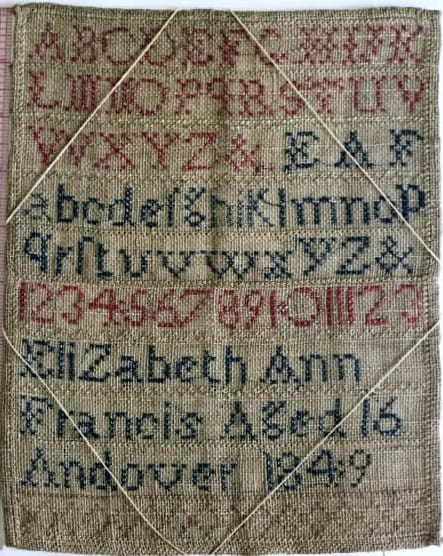 ABCDEFGHIJK
LMNOPQRSTUV
WXYZ& EAF
abcdefghiklmnop
qrſtuvwxyz&
12345678910111213
Elizabeth Ann
Francis Aged 16
Andover 1849